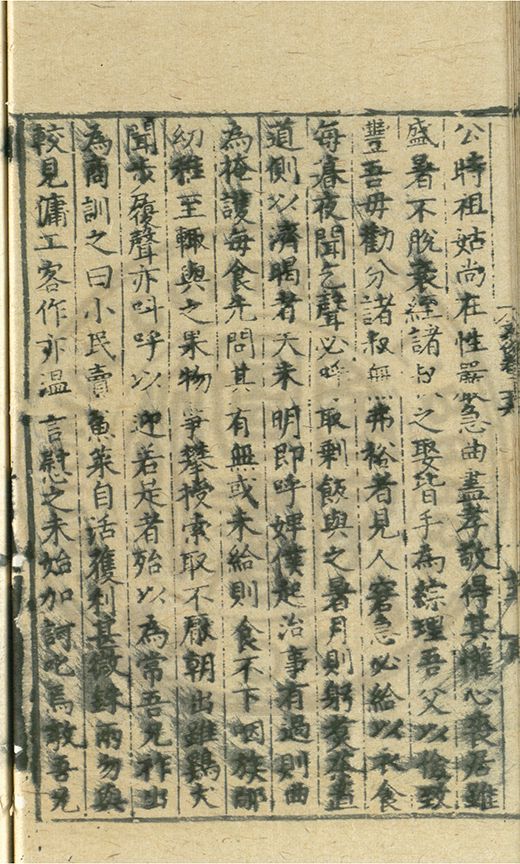 公時祖姑尚在性嚴急曲盡孝敬得其懽心喪居雖
盛暑不脫衰絰諸叔之娶皆手為綜理吾父以儉致
豐吾毋勸分諸叔無弗裕者見人窘急必給以衣食
每暮夜聞乞聲必呼取剩飯與之暑月則躬煑茶置
道側以濟暍者天未明即呼婢僕起治事有過則曲
為掩護每食先問其有無或未給則食不下咽族鄰
幼稚至輒與之果物爭攀挼索取不厭朝出雖鷄犬
聞步履聲亦呌呼以迎若是者殆以為常吾兄祚出
為商訓之曰小民賣魚菜自活獲利甚微銖兩勿與
較見傭工客作亦溫言慰之未始加訶叱焉教吾兄